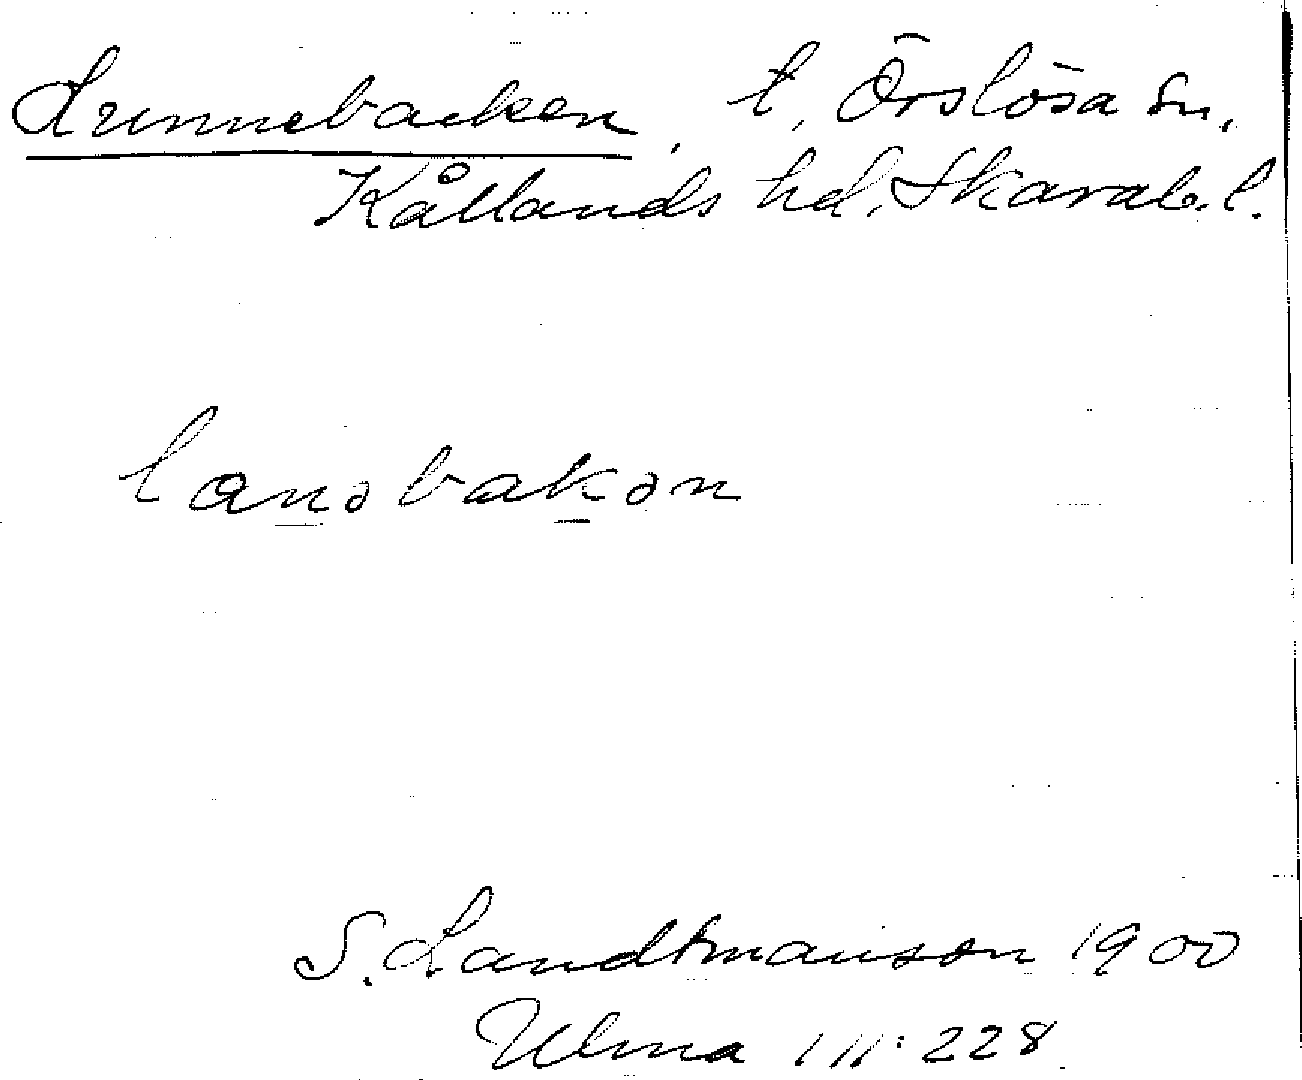 Lunnebacken, t, Örslösa sn,
Kållands hd, Skarab. l.
lanəbakən
S. Landtmanson 1900
Ulma 111:228